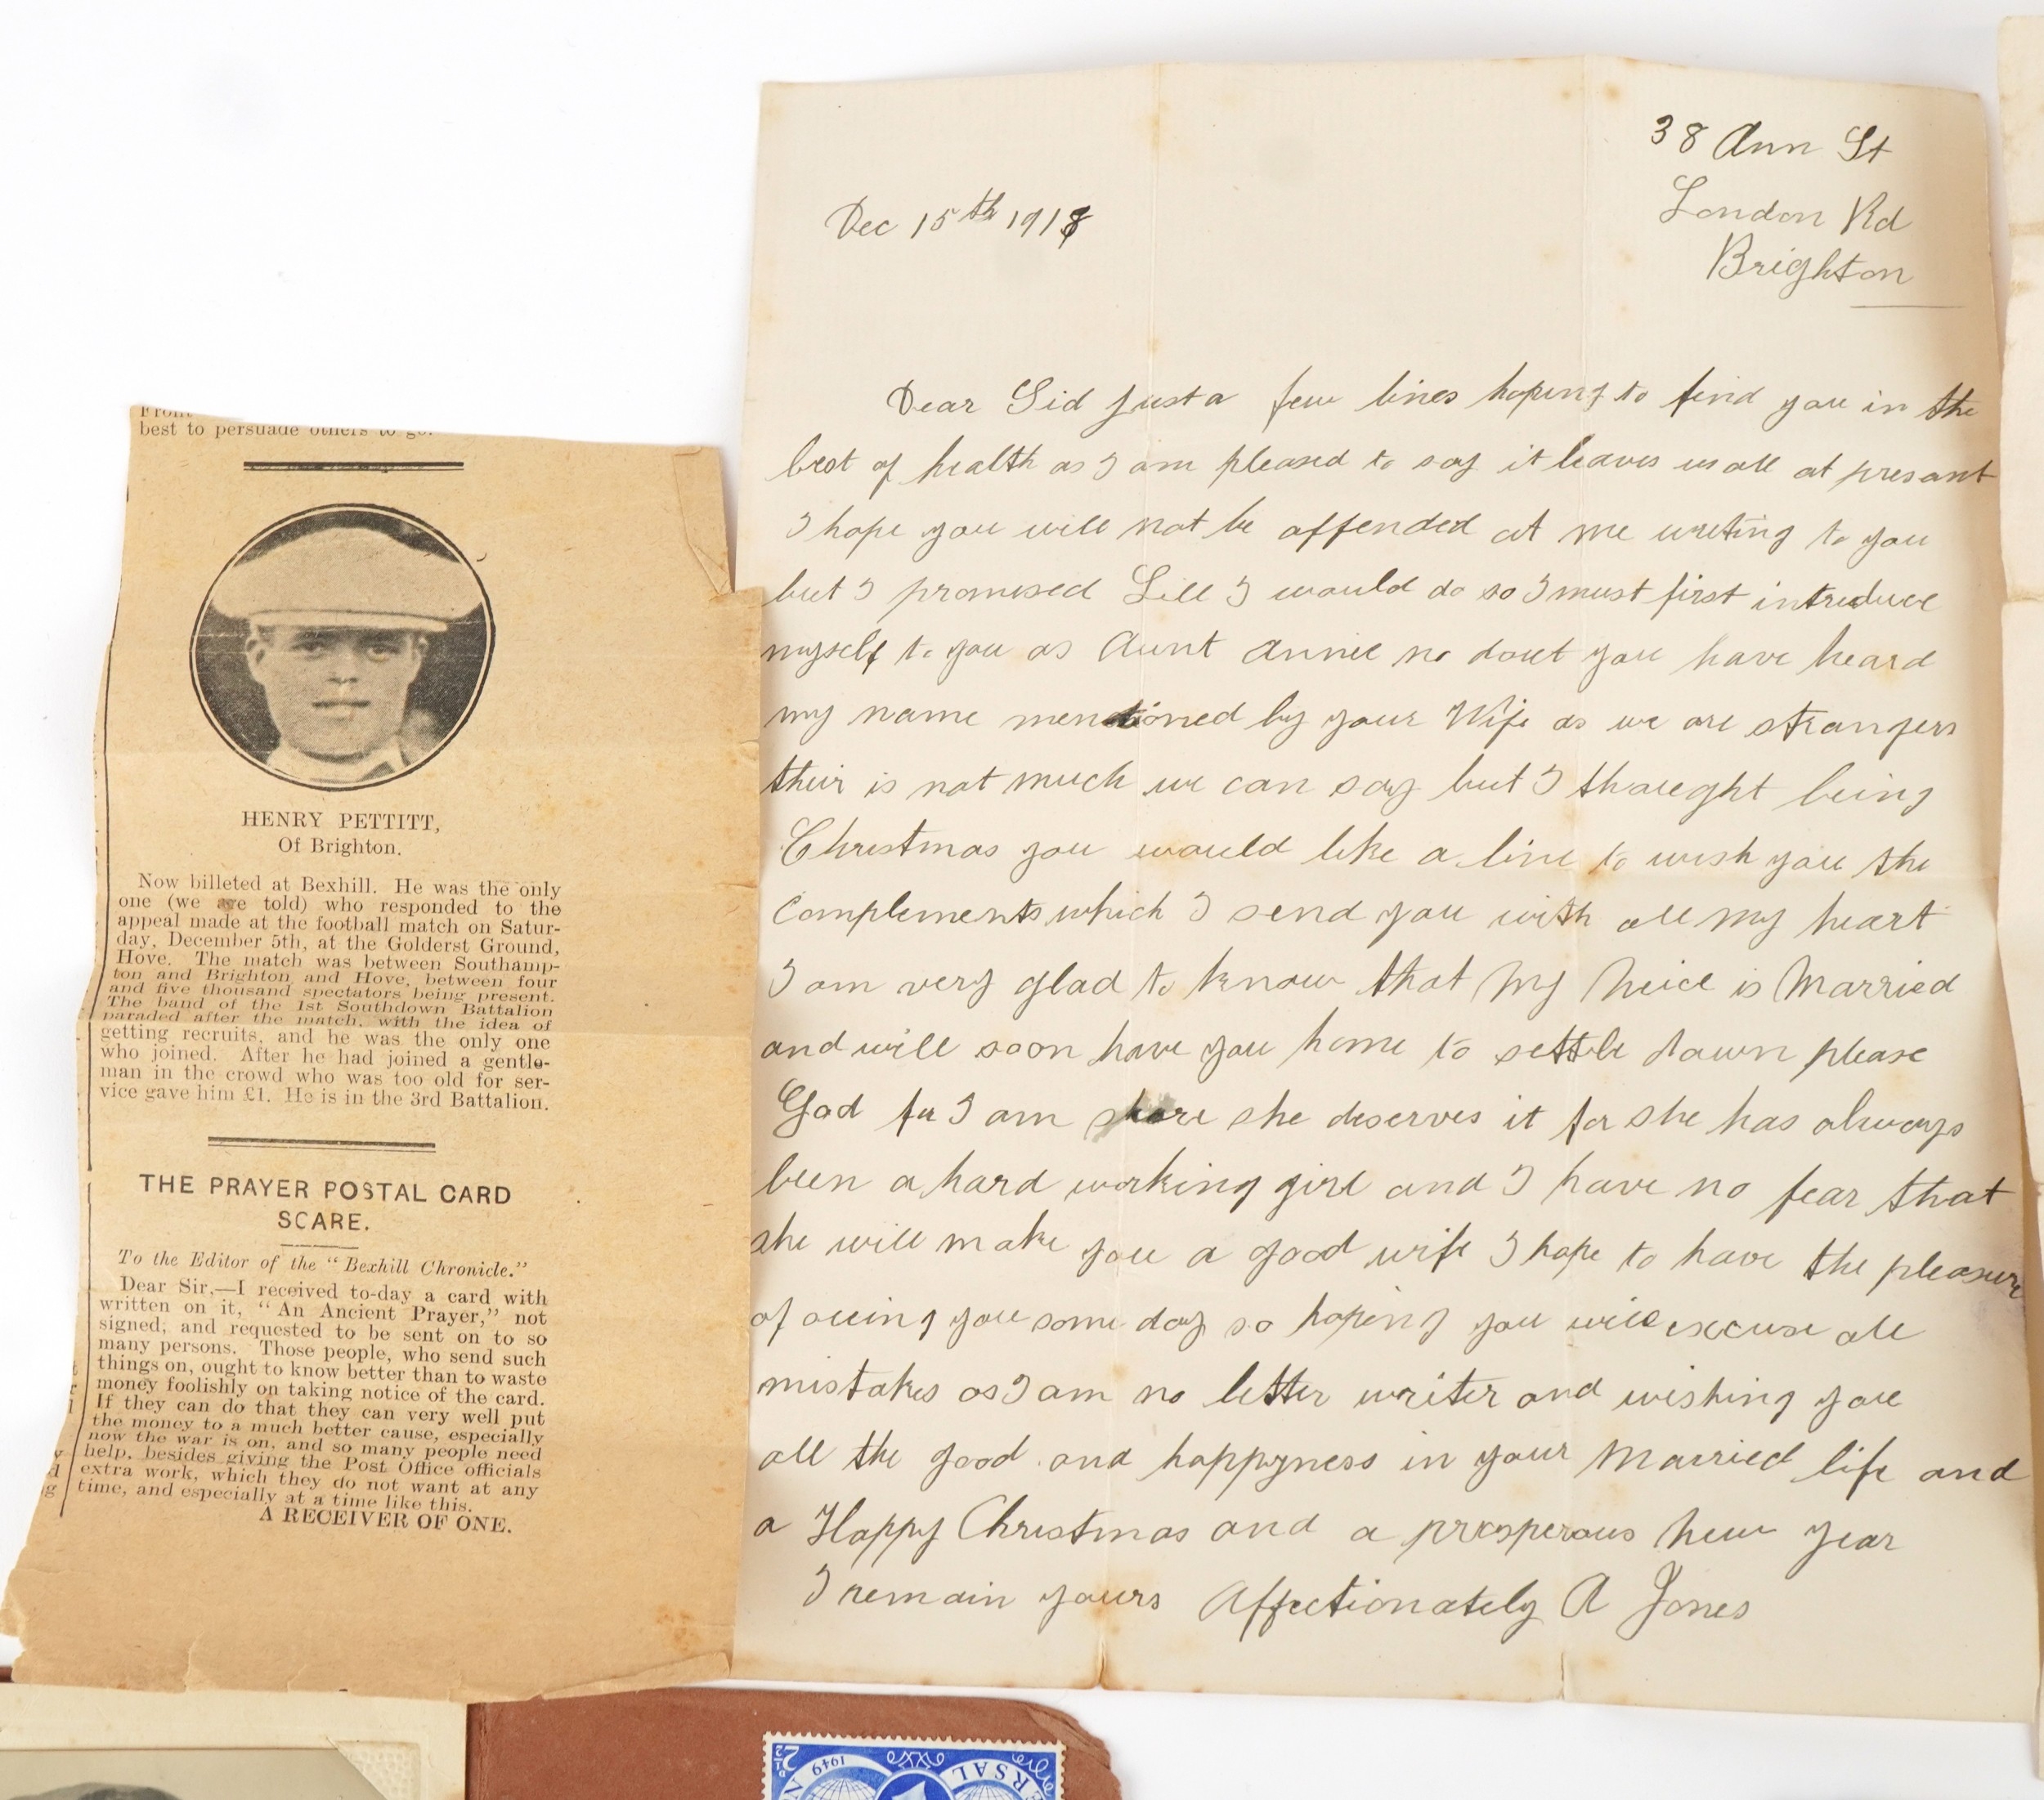 best to persuade others to go.
HENRY PETTITT,
Of Brighton.
Now billeted at Bexhill. He was the only
one (we are told) who responded to the
appeal made at the football match on Satur-
day, December 5th, at the Golderst Ground,
Hove. The match was between Southamp-
ton and Brighton and Hove, between four
and five thousand spectators being present.
The band of the 1st Southdown Battalion
paraded after the match, with the idea of
getting recruits, and he was the only one
who joined. After he had joined a gentle-
man in the crowd who was too old for ser-
vice gave him £1. He is in the 3rd Battalion.
THE PRAYER POSTAL CARD
SCARE.
To the Editor of the "Bexhill Chronicle."
Dear Sir,—I received to-day a card with
written on it, "An Ancient Prayer," not
signed, and requested to be sent on to so
many persons. Those people, who send such
things on, ought to know better than to waste
money foolishly on taking notice of the card.
If they can do that they can very well put
the money to a much better cause, especially
now the war is on, and so many people need
help, besides giving the Post Office officials
extra work, which they do not want at any
time, and especially at a time like this.
A RECEIVER OF ONE.
38 Ann St
London Rd
Brighton
Dec 15th 1918
Dear Sid just a few lines hoping to find you in the
best of health as I am pleased to say it leaves us all at presant
I hope you will not be offended at me writing to you
but I promised Lill I would do so I must first intreduce
myself to you as Aunt Annie no dout you have heard
my name mentioned by your Wife as we are strangers
their is not much we can say but I thought being
Christmas you would like a line to wish you the
complements which I send you with all my heart
I am very glad to know that My Neice is Married
and will soon have you home to settle down please
God for I am shore she deserves it for she has always
been a hard working girl and I have no fear that
she will make you a good wife I hope to have the pleasure
of seeing you some day so hoping you will excuse all
mistakes as I am no letter writer and wishing you
all the good and happyness in your Married life and
a Happy Christmas and a prosperous new year
I remain yours Affectionately A Jones
2½
1949